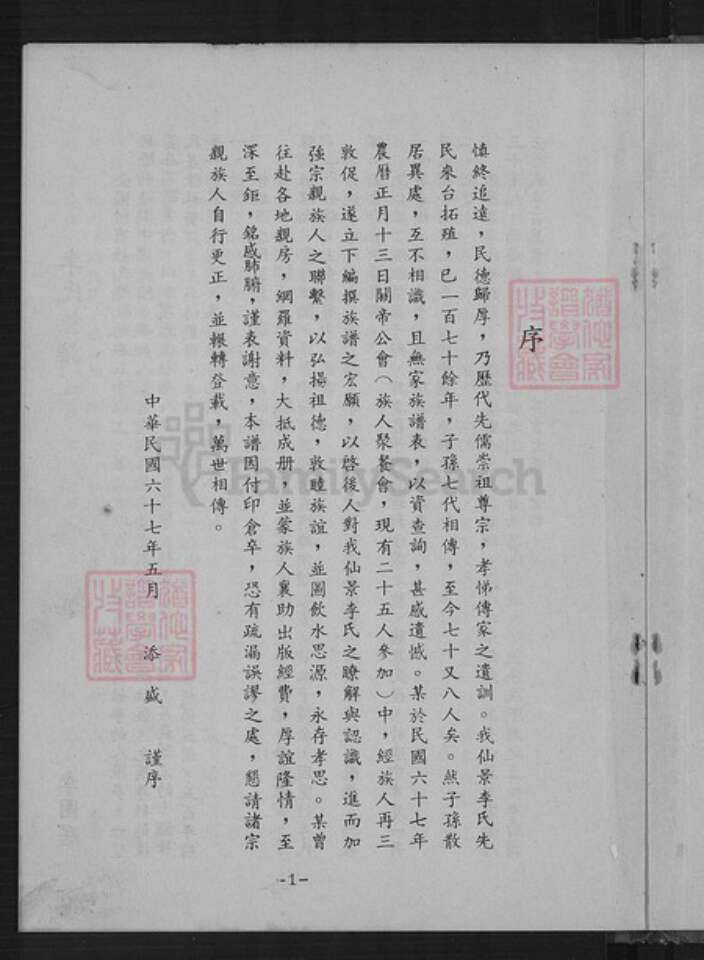 序
慎終追遠，民德歸厚，乃歷代先儒崇祖尊宗，孝悌傳家之遺訓。我仙景李氏先
民來台拓殖，已一百七十餘年，子孫七代相傳，至今七十又八人矣。然子孫散
居異處，互不相識，且無家族譜表，以資查詢，甚感遺憾。某於民國六十七年
農曆正月十三日關帝公會（族人聚餐會，現有二十五人參加）中，經族人再三
敦促，遂立下編撰族譜之宏願，以啓後人對我仙景李氏之瞭解與認識，進而加
強宗親族人之聯繫，以弘揚祖德，敦睦族誼，並圖飲水思源，永存孝思。某曾
往赴各地親房，網羅資料，大抵成册，並蒙族人襄助出版經費，厚誼隆情，至
深至鉅，銘感肺腑，謹表謝意，本譜因付印倉卒，恐有疏漏誤謬之處，懇請諸宗
親族人自行更正，並輾轉登載，萬世相傳。
中華民國六十七年五月　添盛　謹序
-1-
FamilySearch